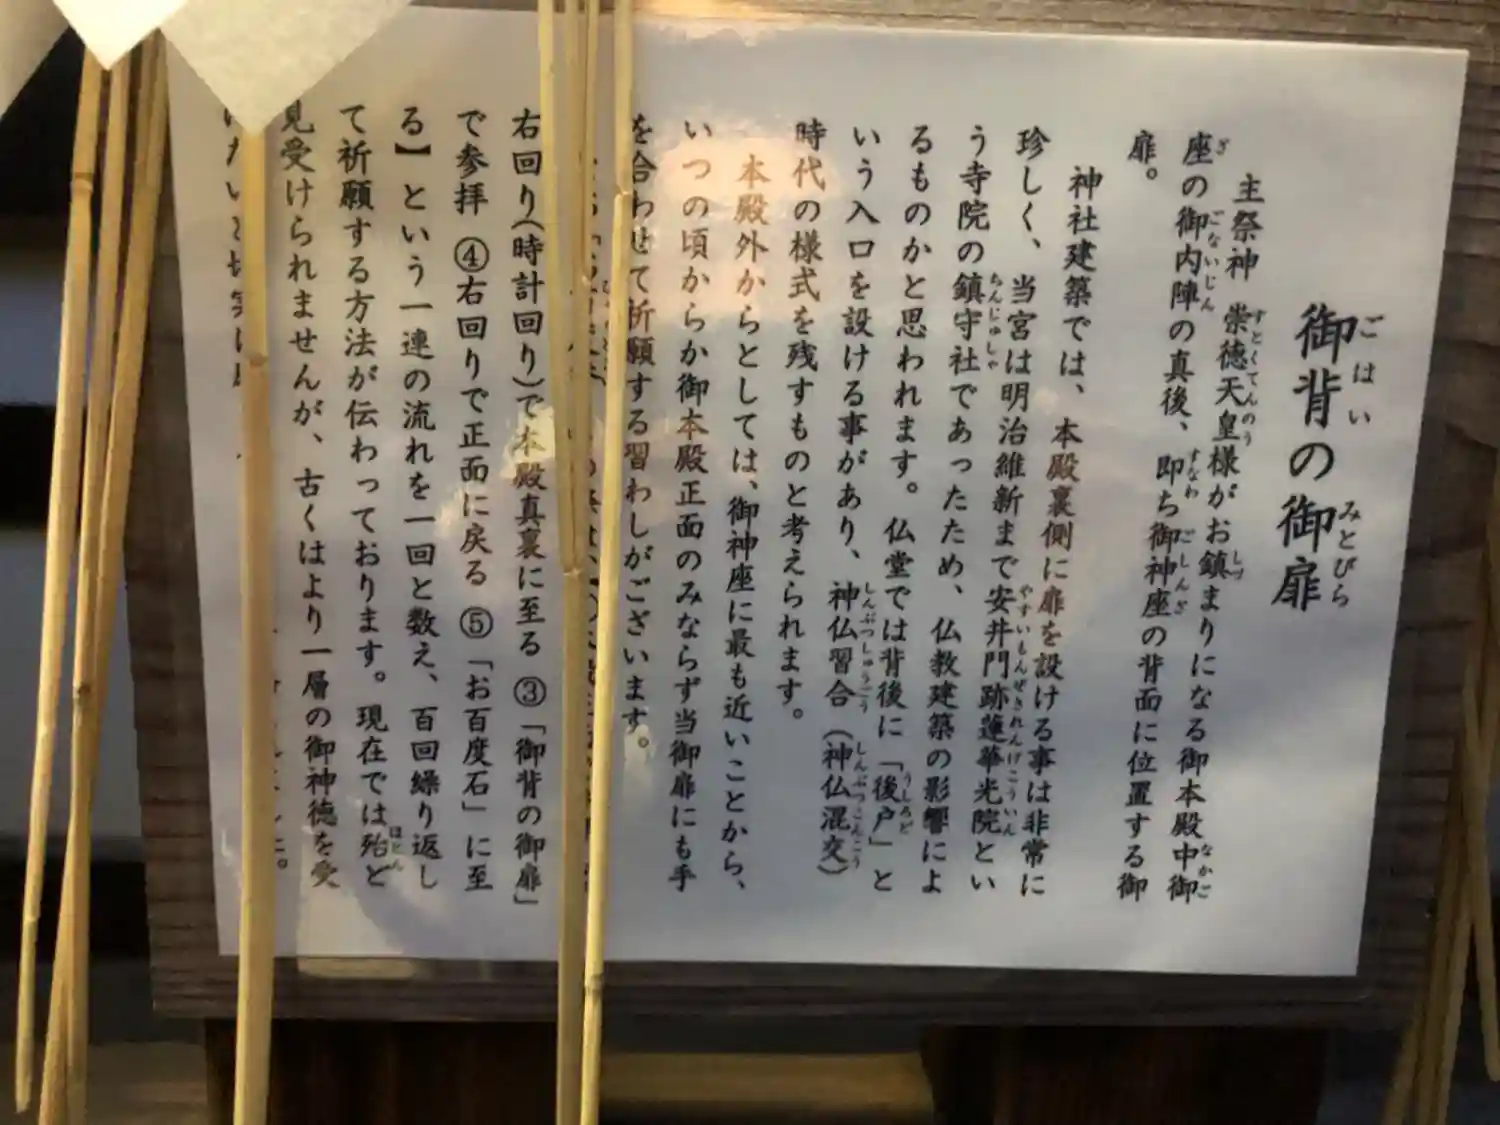 御背の御扉
ごはい
みとびら
主祭神 崇徳天皇様がお鎮まりになる御本殿中御
すとくてんのう
しず
なかご
座の御内陣の真後、即ち御神座の背面に位置する御
ざ
ごないじん
すなわ
ごしんざ
扉。
神社建築では、本殿裏側に扉を設ける事は非常に
珍しく、当宮は明治維新まで安井門跡蓮華光院とい
やすいもんぜきれんげこういん
う寺院の鎮守社であったため、仏教建築の影響によ
ちんじゅしゃ
るものかと思われます。仏堂では背後に「後戸」と
うしろど
いう入口を設ける事があり、神仏習合(神仏混交)
しんぶつしゅうごう
しんぶつこんこう
時代の様式を残すものと考えられます。
本殿外からとしては、御神座に最も近いことから、
いつの頃からか御本殿正面のみならず当御扉にも手
を合わせて祈願する習わしがございます。
右回り(時計回り)で本殿真裏に至る ③「御背の御扉」
で参拝 ④右回りで正面に戻る ⑤「お百度石」に至
る】という一連の流れを一回と数え、百回繰り返し
て祈願する方法が伝わっております。現在では殆ど
ほとん
見受けられませんが、古くはより一層の御神徳を受